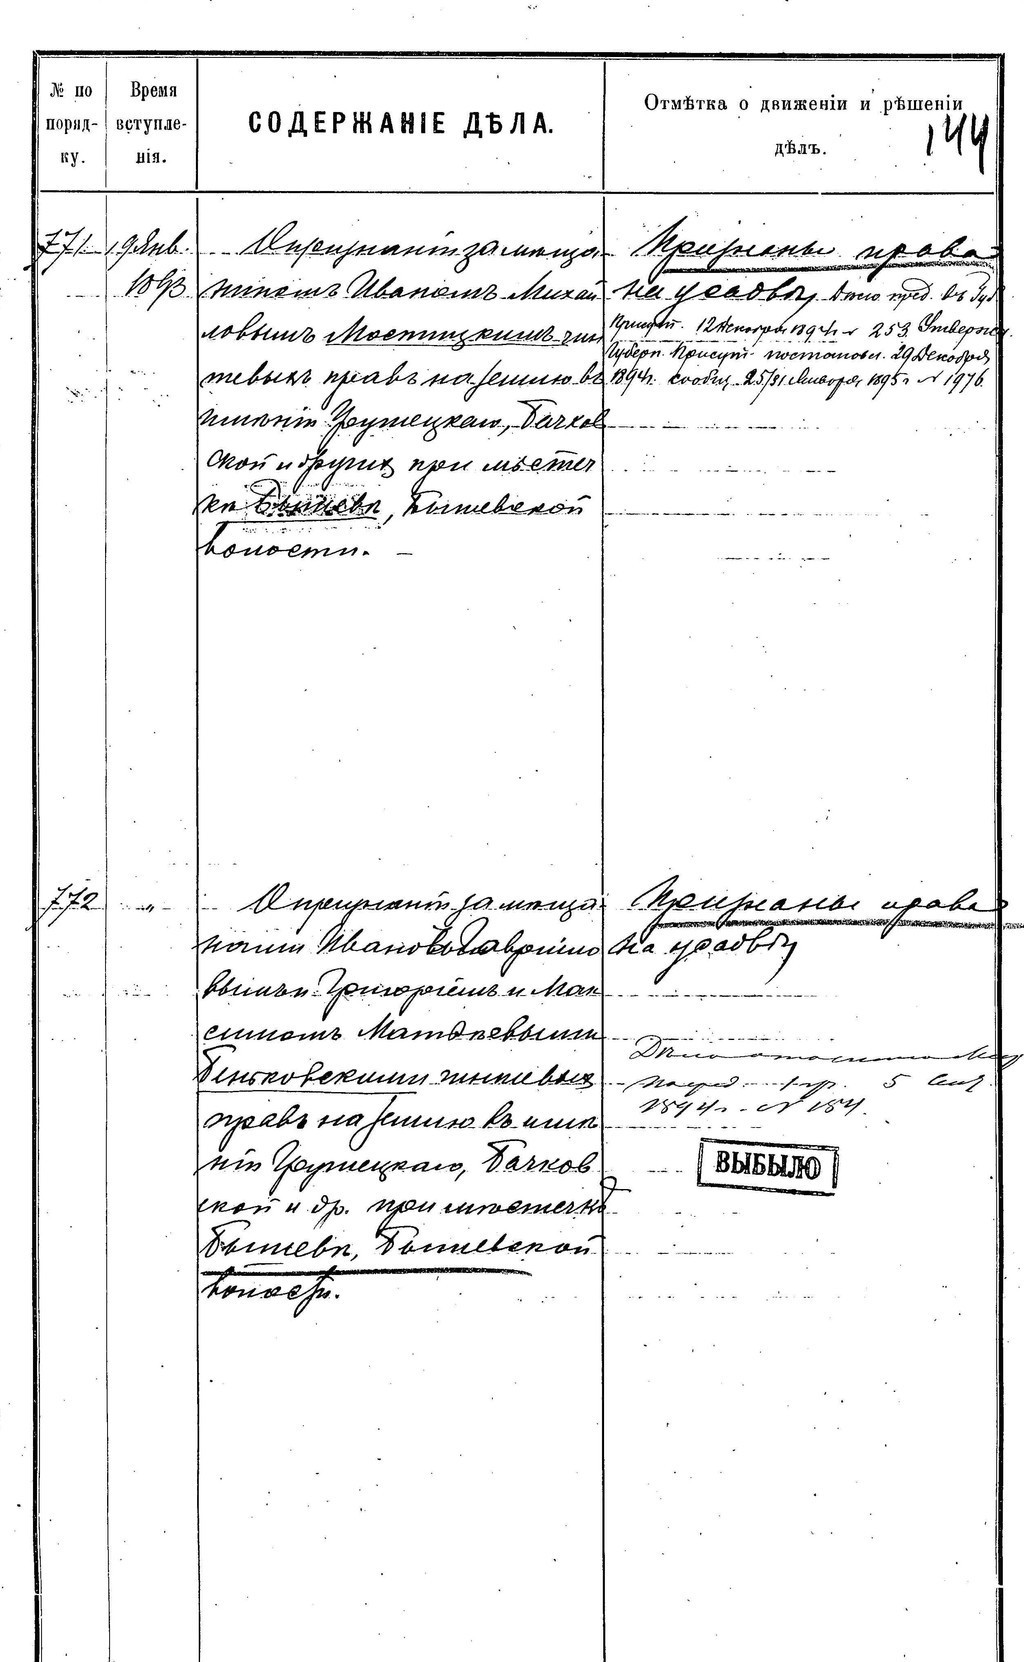 № по
поряд-
ку.
Время
вступле-
нія.
СОДЕРЖАНІЕ ДѢЛА.
Отмѣтка о движеніи и рѣшеніи
дѣлъ.
144
771
19 Янв.
1893
О признаніи за мѣща
ниномъ Иваномъ Михай
ловымъ Мостицкимъ чин
шевыхъ правъ на землю въ
имѣніи Грушецкаго, Бачков
ской и другихъ при местеч
кѣ Бышевѣ, Бышевской
волости.
Признаны права
на усадьбу Дѣло пред. въ Губ.
Присут. 12 Декабря 1894 г. № 253 Утвержд.
Губерн. Присут. постановл. 29 Декабря
1894 г. сообщ. 25/31 Января 1895 г. № 1976
772
"
О признаніи за мѣща
нами Ивановымъ
вымъ и Григоріемъ и Мак
симомъ Маткѣевыми
Беньковскими чиншевыхъ
правъ на землю въ имѣ
ніи Грушецкаго, Бачков
ской и др. при мѣстечкѣ
Бышевѣ, Бышевской
волости.
Признаны права
на усадьбу
Дѣло
5
1894 г. № 184.
ВЫБЫЛО